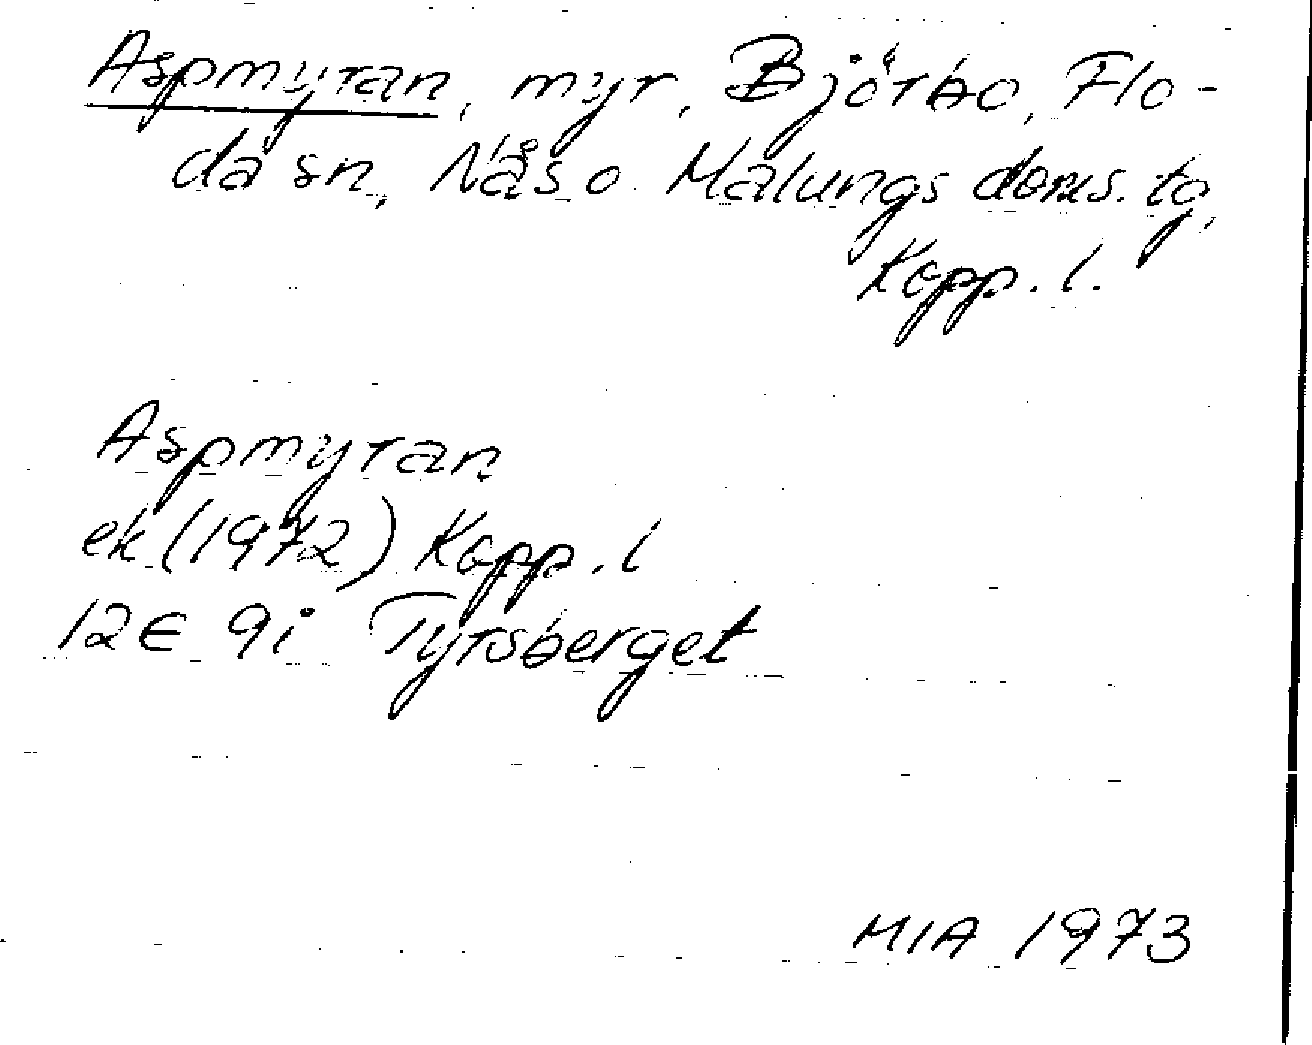 Aspmyran, myr, Björbo, Flo-
da sn, Nås o. Malungs doms. tg,
Kopp. l.
Aspmyran
ek (1972) Kopp. l
12E 9i Tyrsberget
MIA 1973